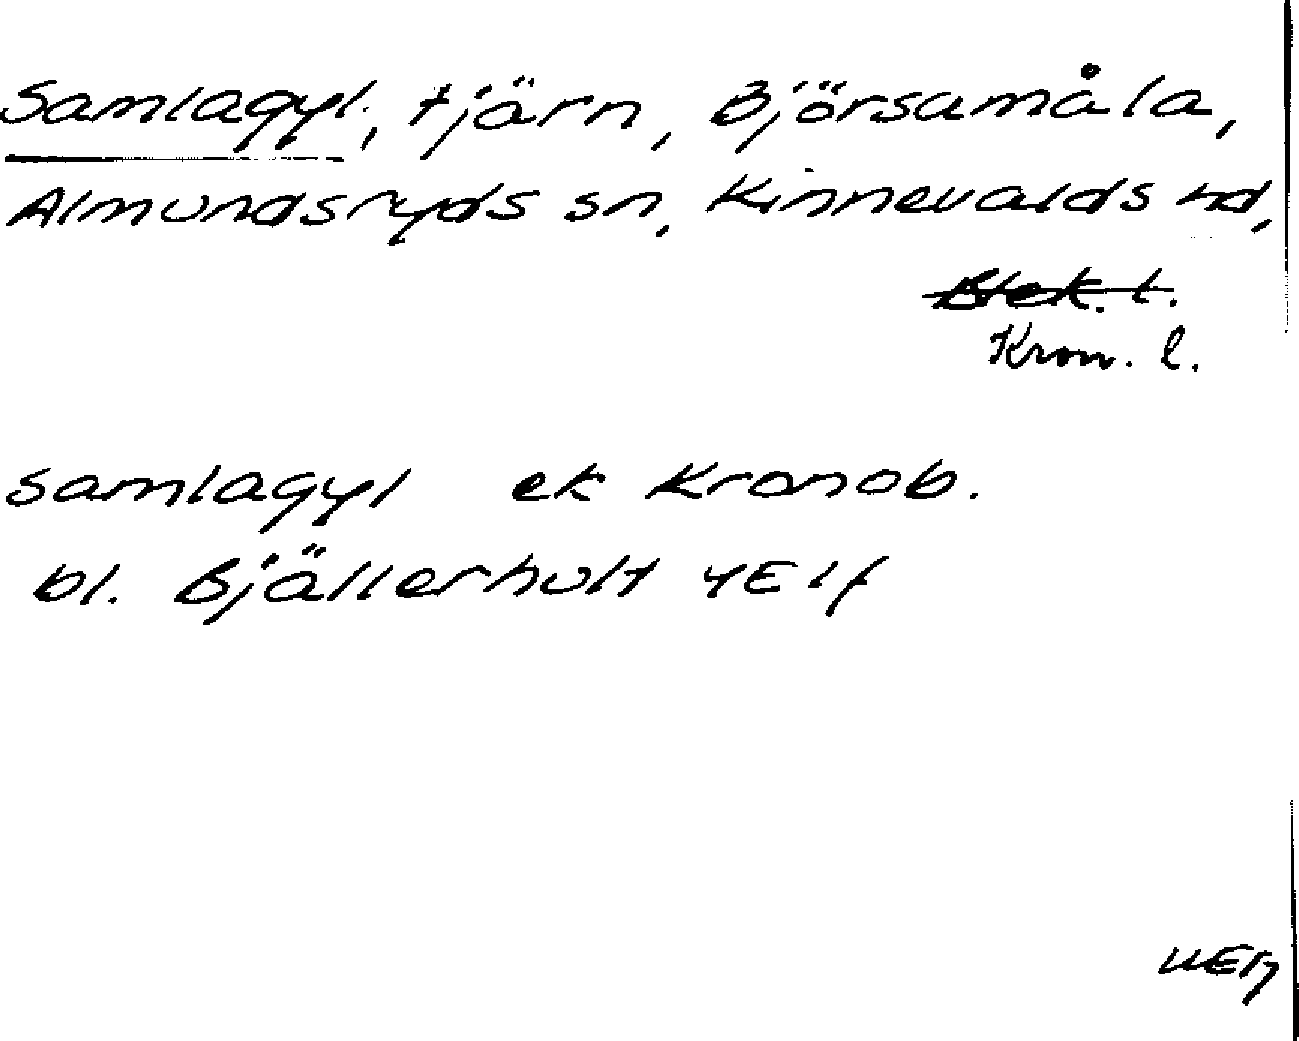 Samlagyl, tjärn, Björsamåla,
Almundsryds sn, Kinnevalds hd,
Blek. l.
Kron. l.
Samlagyl ek Kronob.
bl. Bjällerhult 4E 1f